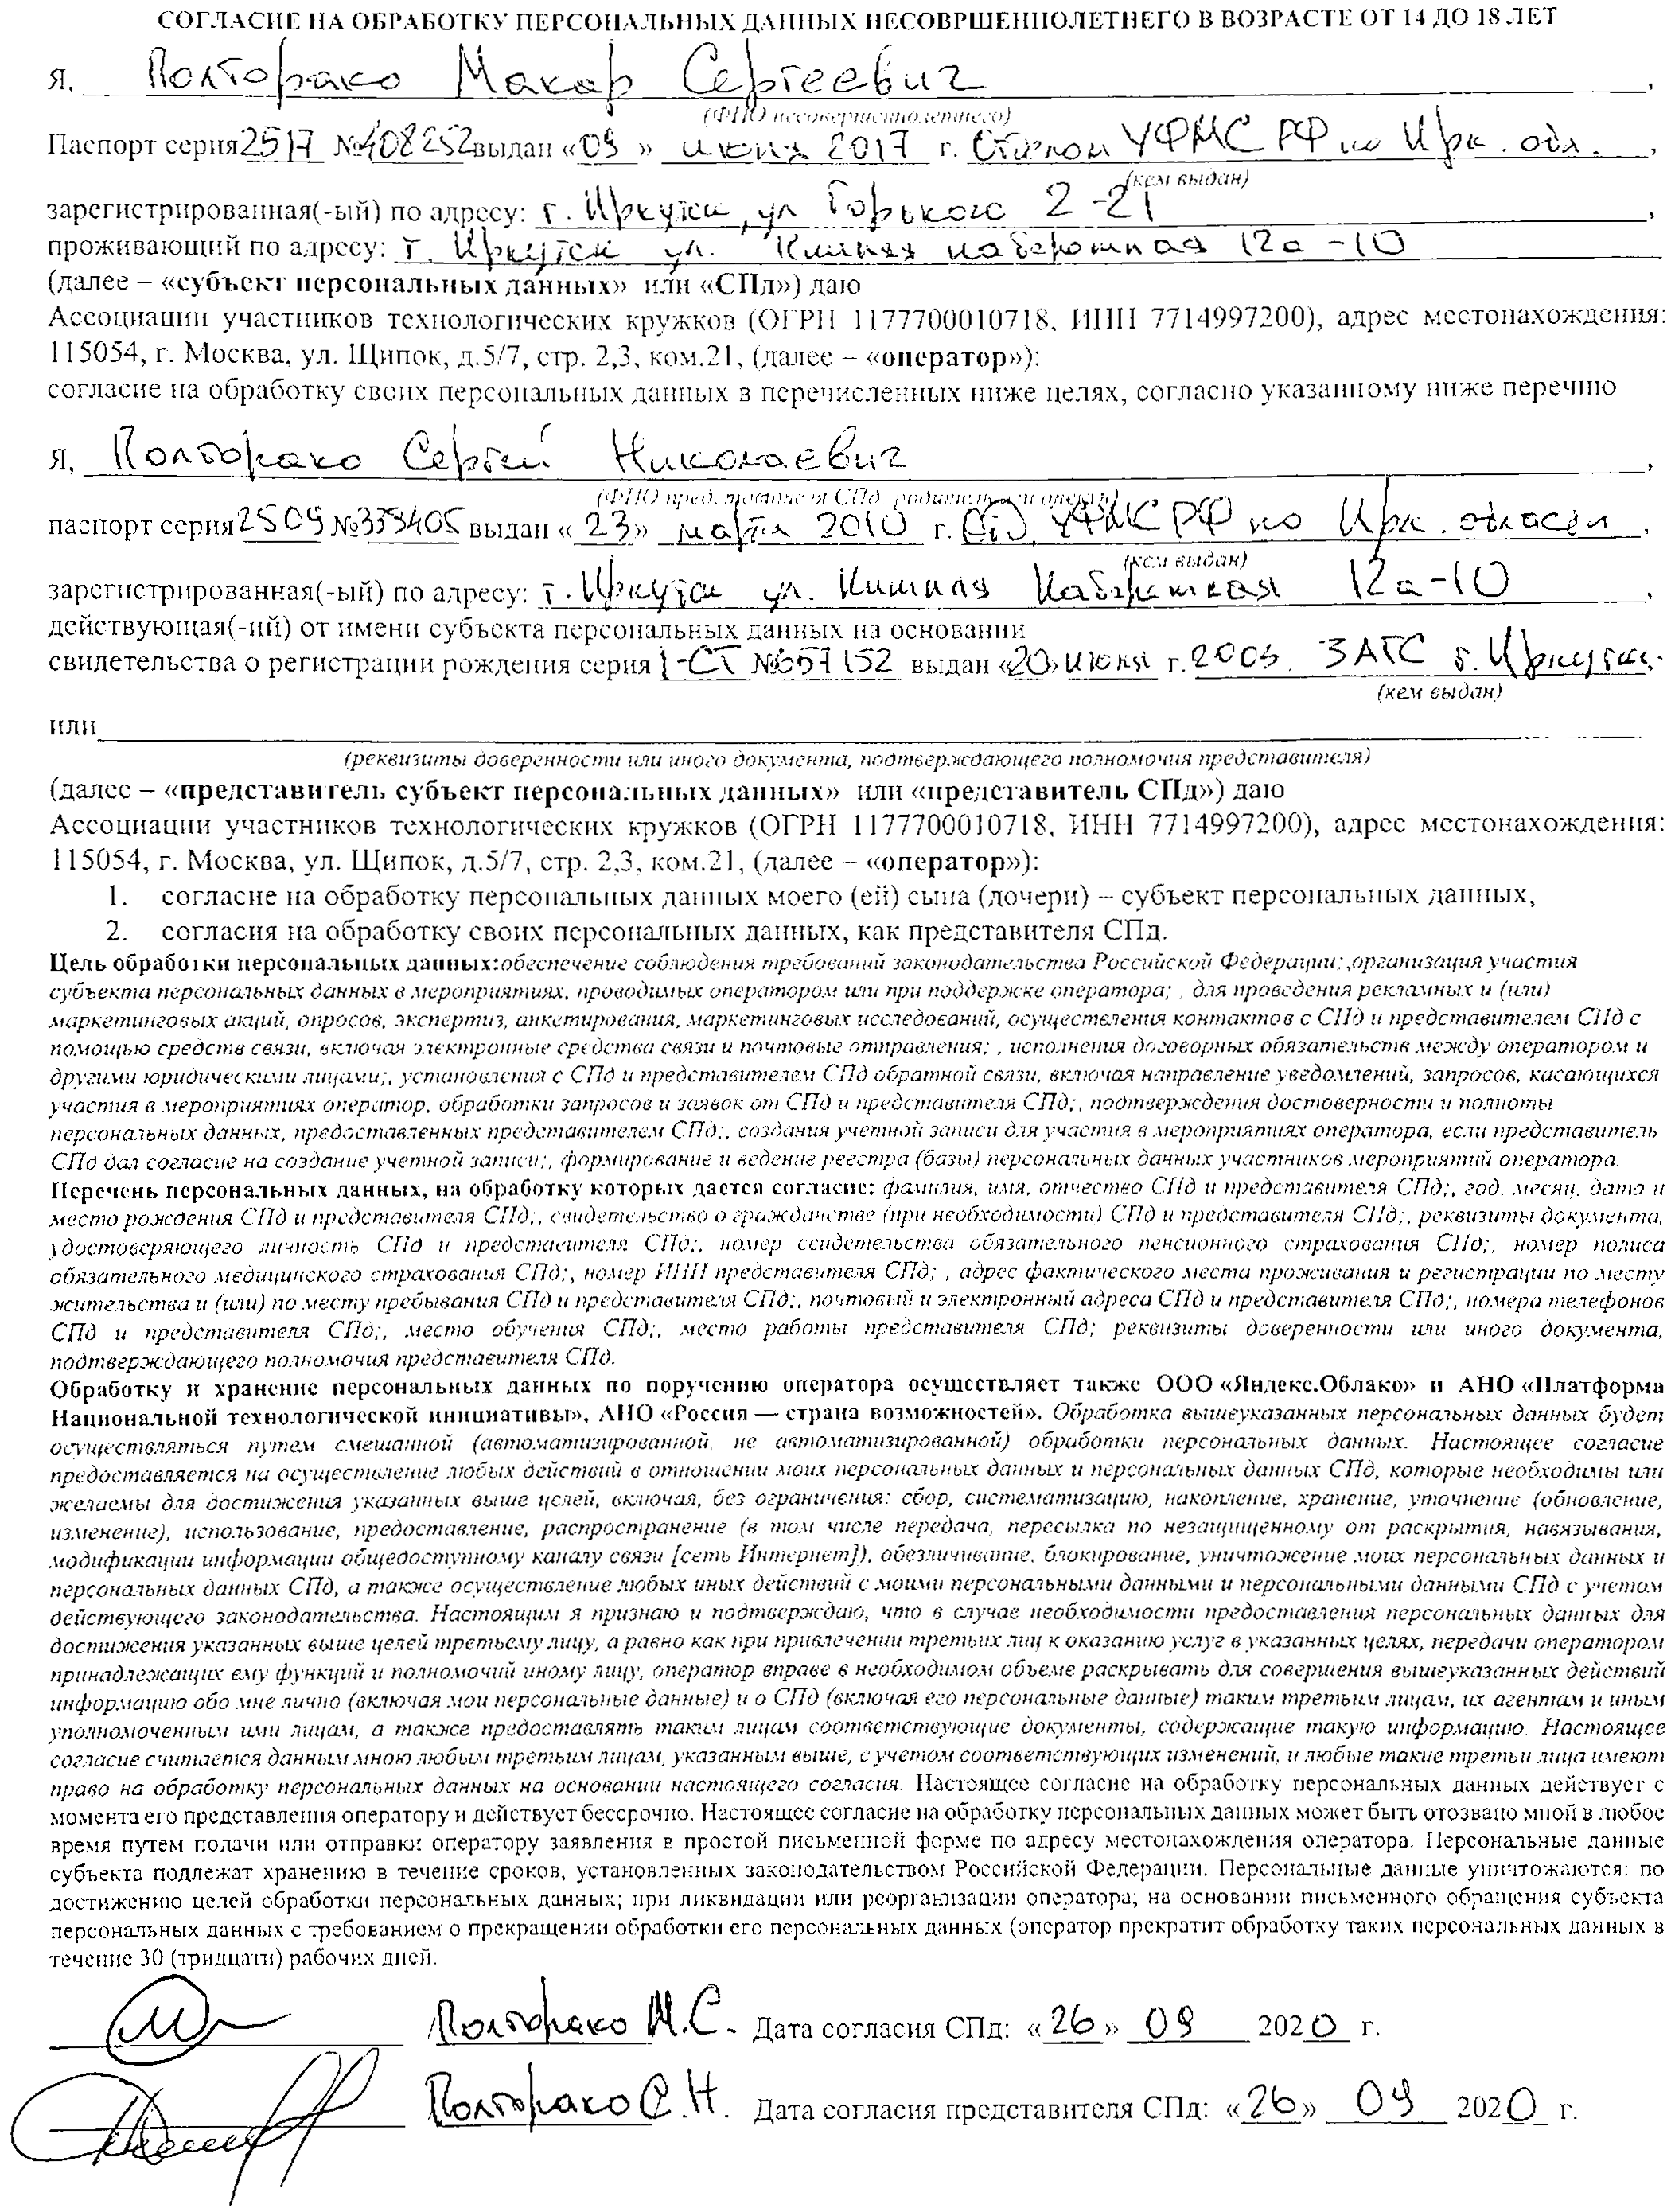 СОГЛАСИЕ НА ОБРАБОТКУ ПЕРСОНАЛЬНЫХ ДАННЫХ НЕСОВРШЕННОЛЕТНЕГО В ВОЗРАСТЕ ОТ 14 ДО 18 ЛЕТ
Я, Полторако Макар Сергеевич,
(ФИО несовершеннолетнего)
Паспорт серия 2517 №408252 выдан «09» июня 2017 г. УФМС РФ по Ирк. обл.,
(кем выдан)
зарегистрированная(-ый) по адресу: г. Иркутск, ул Горького 2-21,
проживающий по адресу: г. Иркутск ул. набережная 12а-10
(далее – «субъект персональных данных» или «СПд») даю
Ассоциации участников технологических кружков (ОГРН 1177700010718, ИНН 7714997200), адрес местонахождения:
115054, г. Москва, ул. Щипок, д.5/7, стр. 2,3, ком.21, (далее – «оператор»):
согласие на обработку своих персональных данных в перечисленных ниже целях, согласно указанному ниже перечню
Я, Полторако Сергей Николаевич,
(ФИО представителя СПд, родитель или опекун)
паспорт серия 2509 №339405 выдан «23» марта 2010 г. УФМС РФ по Ирк. области,
(кем выдан)
зарегистрированная(-ый) по адресу: г. Иркутск ул. Набережная 12а-10,
действующая(-ий) от имени субъекта персональных данных на основании
свидетельства о регистрации рождения серия I-СТ №657152 выдан «20» июня г. 2003. ЗАГС г. Иркутска
(кем выдан)
или
(реквизиты доверенности или иного документа, подтверждающего полномочия представителя)
(далее – «представитель субъект персональных данных» или «представитель СПд») даю
Ассоциации участников технологических кружков (ОГРН 1177700010718, ИНН 7714997200), адрес местонахождения:
115054, г. Москва, ул. Щипок, д.5/7, стр. 2,3, ком.21, (далее – «оператор»):
1. согласие на обработку персональных данных моего (ей) сына (дочери) – субъект персональных данных,
2. согласия на обработку своих персональных данных, как представителя СПд.
Цель обработки персональных данных:обеспечение соблюдения требований законодательства Российской Федерации;,организация участия
субъекта персональных данных в мероприятиях, проводимых оператором или при поддержке оператора; , для проведения рекламных и (или)
маркетинговых акций, опросов, экспертиз, анкетирования, маркетинговых исследований, осуществления контактов с СПд и представителем СПд с
помощью средств связи, включая электронные средства связи и почтовые отправления; , исполнения договорных обязательств между оператором и
другими юридическими лицами;, установления с СПд и представителем СПд обратной связи, включая направление уведомлений, запросов, касающихся
участия в мероприятиях оператор, обработки запросов и заявок от СПд и представителя СПд;, подтверждения достоверности и полноты
персональных данных, предоставленных представителем СПд;, создания учетной записи для участия в мероприятиях оператора, если представитель
СПд дал согласие на создание учетной записи;, формирование и ведение реестра (базы) персональных данных участников мероприятий оператора.
Перечень персональных данных, на обработку которых дается согласие: фамилия, имя, отчество СПд и представителя СПд;, год, месяц, дата и
место рождения СПд и представителя СПд;, свидетельство о гражданстве (при необходимости) СПд и представителя СПд;, реквизиты документа,
удостоверяющего личность СПд и представителя СПд;, номер свидетельства обязательного пенсионного страхования СПд;, номер полиса
обязательного медицинского страхования СПд;, номер ИНН представителя СПд; , адрес фактического места проживания и регистрации по месту
жительства и (или) по месту пребывания СПд и представителя СПд;, почтовый и электронный адреса СПд и представителя СПд;, номера телефонов
СПд и представителя СПд;, место обучения СПд;, место работы представителя СПд; реквизиты доверенности или иного документа,
подтверждающего полномочия представителя СПд.
Обработку и хранение персональных данных по поручению оператора осуществляет также ООО «Яндекс.Облако» и АНО «Платформа
Национальной технологической инициативы», АНО «Россия — страна возможностей». Обработка вышеуказанных персональных данных будет
осуществляться путем смешанной (автоматизированной, не автоматизированной) обработки персональных данных. Настоящее согласие
предоставляется на осуществление любых действий в отношении моих персональных данных и персональных данных СПд, которые необходимы или
желаемы для достижения указанных выше целей, включая, без ограничения: сбор, систематизацию, накопление, хранение, уточнение (обновление,
изменение), использование, предоставление, распространение (в том числе передача, пересылка по незащищенному от раскрытия, навязывания,
модификации информации общедоступному каналу связи [сеть Интернет]), обезличивание, блокирование, уничтожение моих персональных данных и
персональных данных СПд, а также осуществление любых иных действий с моими персональными данными и персональными данными СПд с учетом
действующего законодательства. Настоящим я признаю и подтверждаю, что в случае необходимости предоставления персональных данных для
достижения указанных выше целей третьему лицу, а равно как при привлечении третьих лиц к оказанию услуг в указанных целях, передачи оператором
принадлежащих ему функций и полномочий иному лицу, оператор вправе в необходимом объеме раскрывать для совершения вышеуказанных действий
информацию обо мне лично (включая мои персональные данные) и о СПд (включая его персональные данные) таким третьим лицам, их агентам и иным
уполномоченным ими лицам, а также предоставлять таким лицам соответствующие документы, содержащие такую информацию. Настоящее
согласие считается данным мною любым третьим лицам, указанным выше, с учетом соответствующих изменений, и любые такие третьи лица имеют
право на обработку персональных данных на основании настоящего согласия. Настоящее согласие на обработку персональных данных действует с
момента его представления оператору и действует бессрочно. Настоящее согласие на обработку персональных данных может быть отозвано мной в любое
время путем подачи или отправки оператору заявления в простой письменной форме по адресу местонахождения оператора. Персональные данные
субъекта подлежат хранению в течение сроков, установленных законодательством Российской Федерации. Персональные данные уничтожаются: по
достижению целей обработки персональных данных; при ликвидации или реорганизации оператора; на основании письменного обращения субъекта
персональных данных с требованием о прекращении обработки его персональных данных (оператор прекратит обработку таких персональных данных в
течение 30 (тридцати) рабочих дней.
Полторако М.С. Дата согласия СПд: «26» 09 2020 г.
Полторако С.Н. Дата согласия представителя СПд: «26» 09 2020 г.